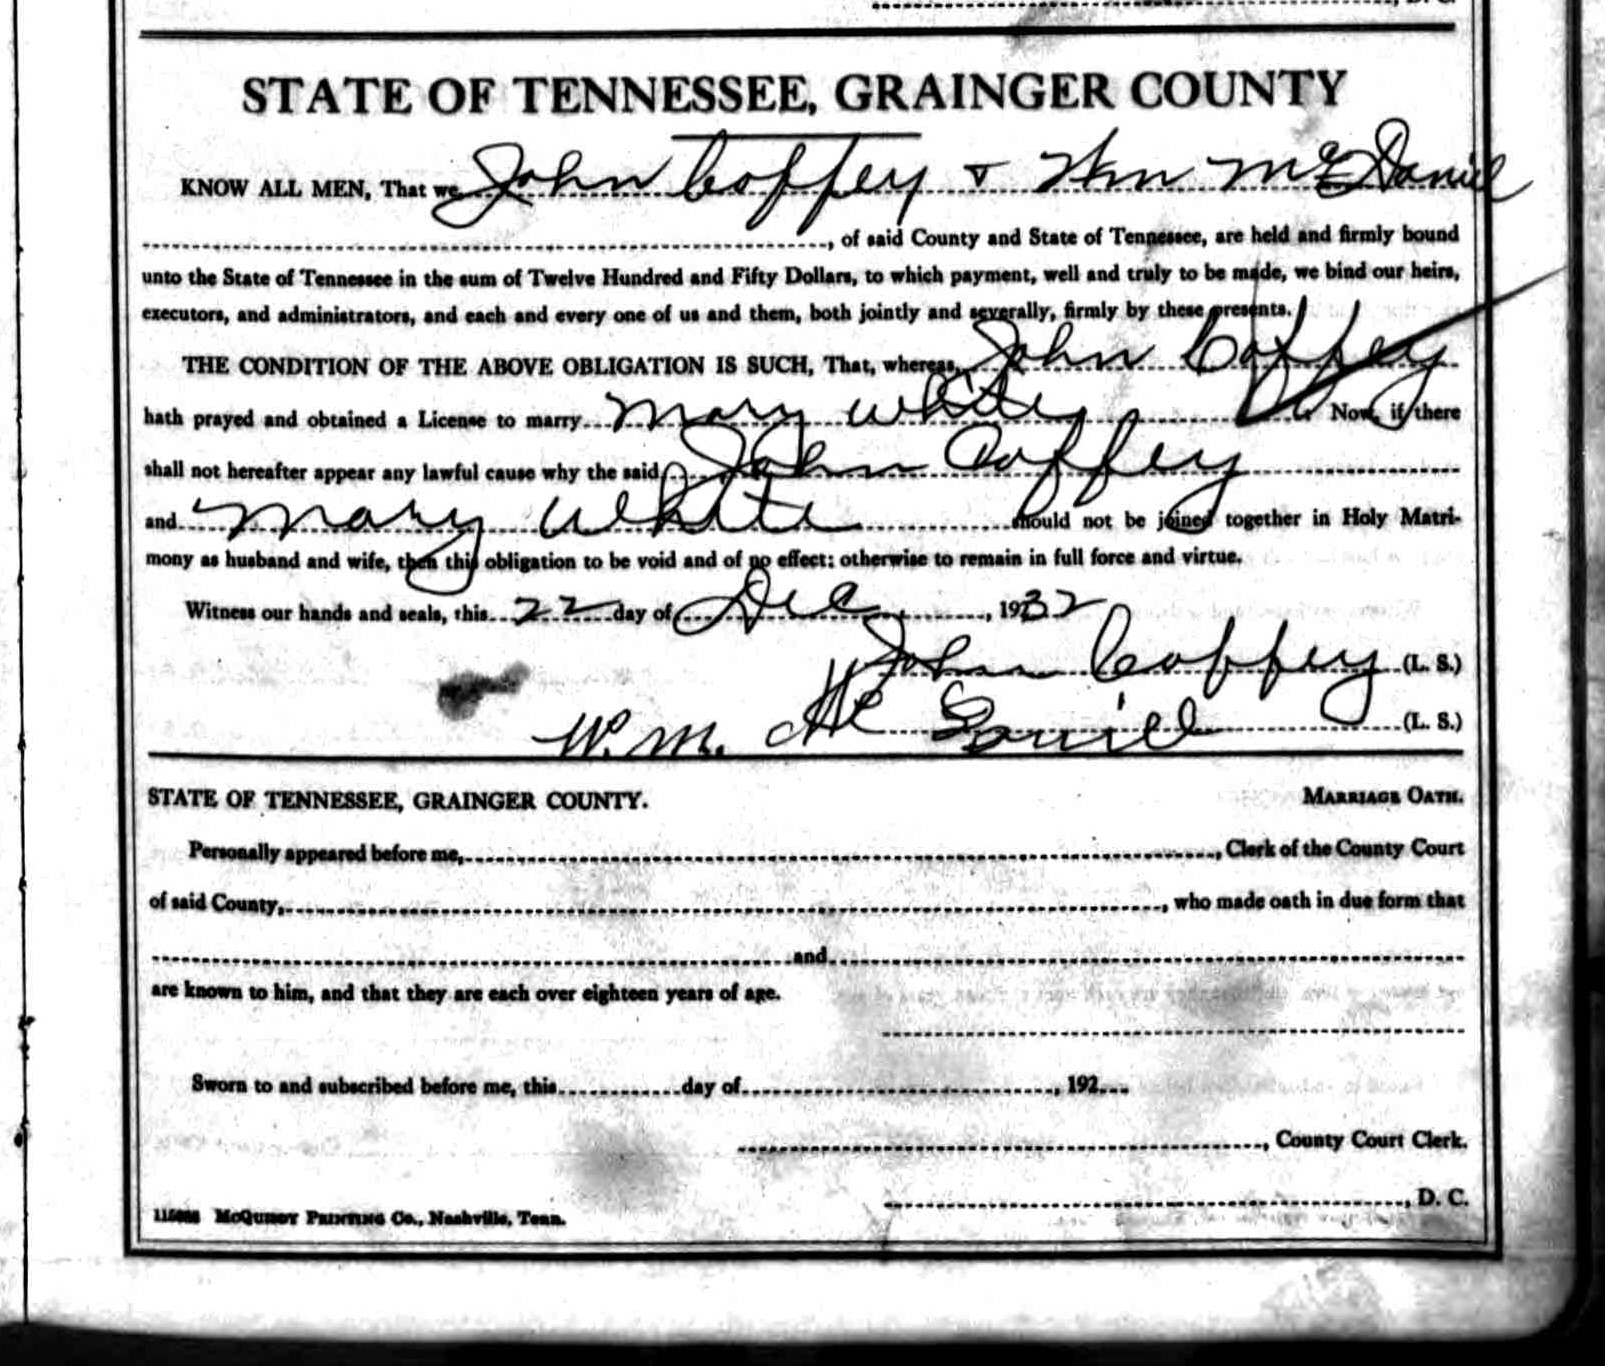 D. C.
STATE OF TENNESSEE, GRAINGER COUNTY
KNOW ALL MEN, That we John Coffey & Wm McDaniel
, of said County and State of Tennessee, are held and firmly bound
unto the State of Tennessee in the sum of Twelve Hundred and Fifty Dollars, to which payment, well and truly to be made, we bind our heirs,
executors, and administrators, and each and every one of us and them, both jointly and severally, firmly by these presents.
THE CONDITION OF THE ABOVE OBLIGATION IS SUCH, That, whereas, John Coffey
hath prayed and obtained a License to marry Mary White. Now, if there
shall not hereafter appear any lawful cause why the said John Coffey
and Mary White should not be joined together in Holy Matri-
mony as husband and wife, then this obligation to be void and of no effect: otherwise to remain in full force and virtue.
Witness our hands and seals, this 22 day of Dec, 1932
John Coffey (L. S.)
W. M. Mc Daniel (L. S.)
STATE OF TENNESSEE, GRAINGER COUNTY. MARRIAGE OATH.
Personally appeared before me, , Clerk of the County Court
of said County, , who made oath in due form that
and
are known to him, and that they are each over eighteen years of age.
Sworn to and subscribed before me, this day of , 192
, County Court Clerk.
, D. C.
McQUIDDY PRINTING Co., Nashville, Tenn.